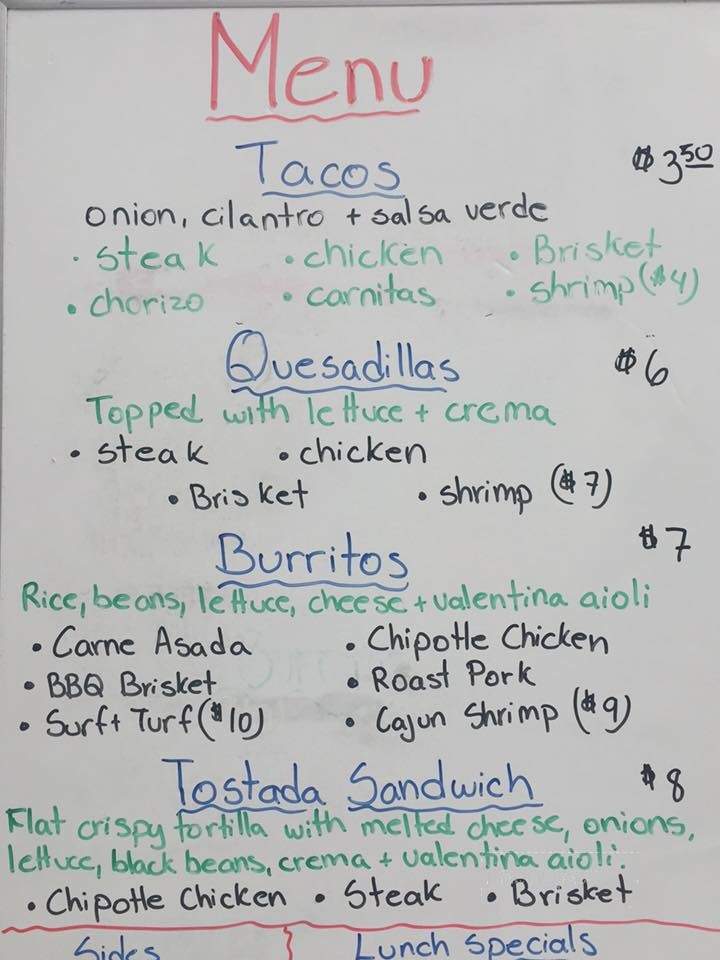 Menu
Tacos $3.50
onion, cilantro + salsa verde
• steak • chicken • Brisket
• chorizo • carnitas • shrimp ($4)
Quesadillas $6
Topped with lettuce + crema
• steak • chicken
• Brisket • shrimp ($7)
Burritos $7
Rice, beans, lettuce, cheese + valentina aioli
• Carne Asada • Chipotle Chicken
• BBQ Brisket • Roast Pork
• Surf + Turf ($10) • Cajun Shrimp ($9)
Tostada Sandwich $8
Flat crispy tortilla with melted cheese, onions,
lettuce, black beans, crema + valentina aioli.
• Chipotle Chicken • Steak • Brisket
Sides Lunch Specials